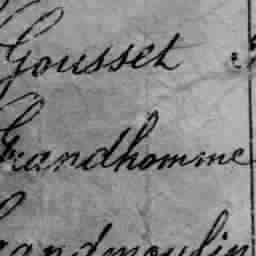 Gousset
Grandhomme
Grandmoulin